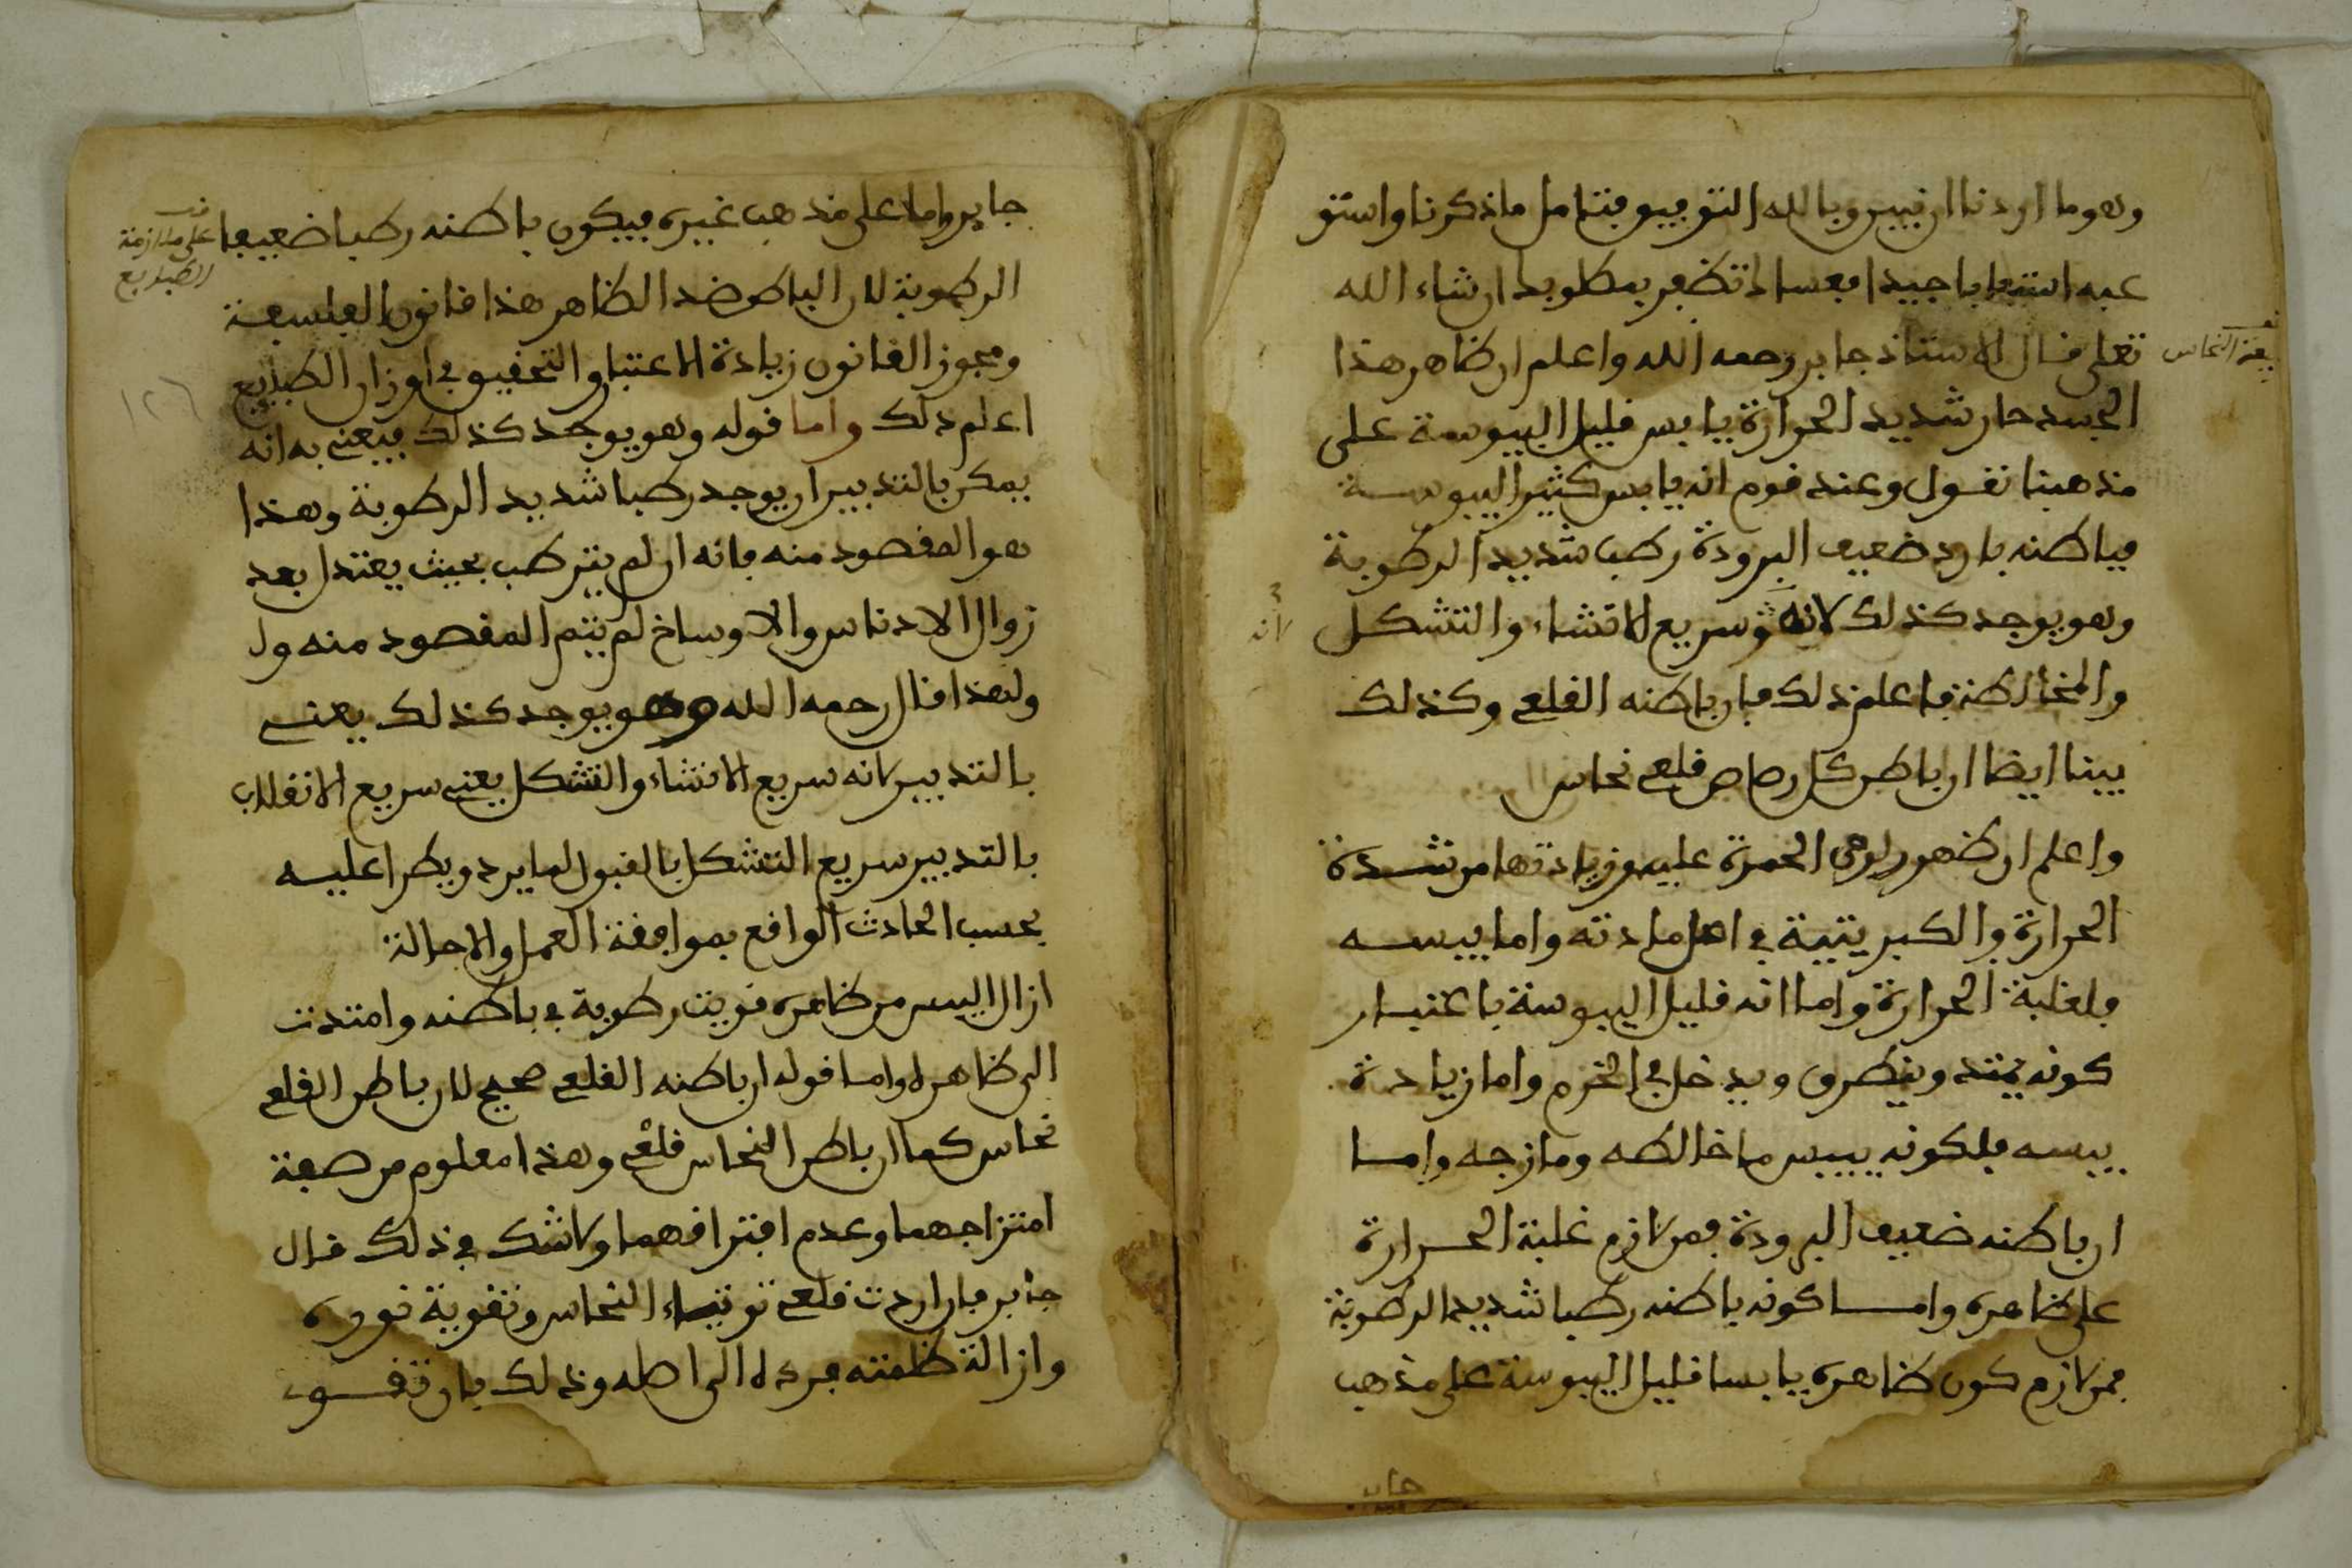 وهو ما اردنا ان نبين وبالله التوفيق فتامل ما ذكرنا واستو
عبه استيعابا جيدا فعساك تظفر بمطلوبك ان شاء الله
تعلى قال الاستاذ جابر رحمه الله واعلم ان ظاهر هذا
الجسد حار شديد الحرارة يابس قليل اليبوسة على
مذهبنا نقول وعند قوم انه يابس كثير اليبوسة
فباطنه بارد ضعيف البرودة رطب شديد الرطوبة
وهو يوجد كذلك لانه سريع الانتشاء والتشكل
لانه
والمخالطة فاعلم ذلك فان باطنه القلعي وكذلك
بينا ايضا ان باطن كل رصاص قلعي نحاس
واعلم ان ظهور لون الحمرة عليه وزيادتها من شدة
الحرارة والكبريتية في اصل مادته واما يبسه
فلغلبة الحرارة واما انه قليل اليبوسة باعتبار
كونه يمتد وينطرق ويدخل في الخرم واما زيادة
يبسه فلكونه ييبس ما خالطه ومازجه واما
ان باطنه ضعيف البرودة فمن لازم غلبة الحرارة
على ظاهره واما كونه باطنه رطبا شديد الرطوبة
فمن لازم كون ظاهره يابسا قليل اليبوسة على مذهب
جابر
جابر واما على مذهب غيره فيكون باطنه رطبا ضعيف
على ملازمة
الطبايع
الرطوبة لان الباطن ضد الظاهر هذا قانون الفلسفة
ومجوز القانون زيادة الاعتبار والتحقيق في اوزان الطبايع
١٢٦
اعلم ذلك واما قوله وهو يوجد كذلك فيعني به انه
يمكن بالتدبير ان يوجد رطبا شديد الرطوبة وهذا
هو المقصود منه فانه ان لم يترطب بحيث يعتدل بعد
زوال الادناس والاوساخ لم يتم المقصود منه ول
ولهذا قال رحمه الله وهو يوجد كذلك يعني
بالتدبير لانه سريع الانتشاء والتشكل يعني سريع الانقلاب
بالتدبير سريع التشكل بالقبول لما يرد ويطرا عليه
بحسب الحادث الواقع بموافقة العمل والاحالة
ازال اليبس من ظاهره قويت رطوبة في باطنه وامتدت
الى ظاهره واما قوله ان باطنه القلعي صحيح لان باطن القلعي
نحاس كما ان باطن النحاس قلعي وهذا معلوم من صفة
امتزاجهما وعدم افتراقهما ولا شك في ذلك قال
جابر فان اردت قلعي النحاس وتقوية نوره
وازالة ظلمته فرده الى اصله وذلك بان تقو